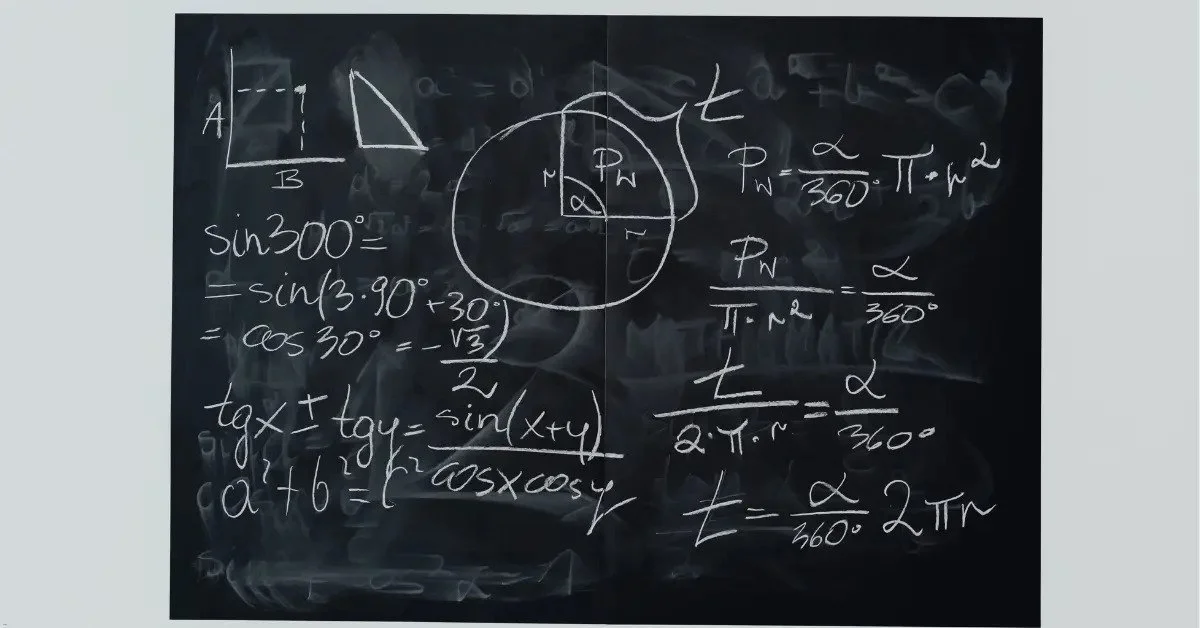 A
B
sin300°=
=sin(3·90°+30°)
= cos30° = -√3/2
tgx ± tgy = sin(x+y)/cosxcosy
a²+b²=c²
t
r
P_W
α
r
P_W = α/360° · π·r²
P_W/π·r² = α/360°
t/2·π·r = α/360°
t = α/360° 2πr